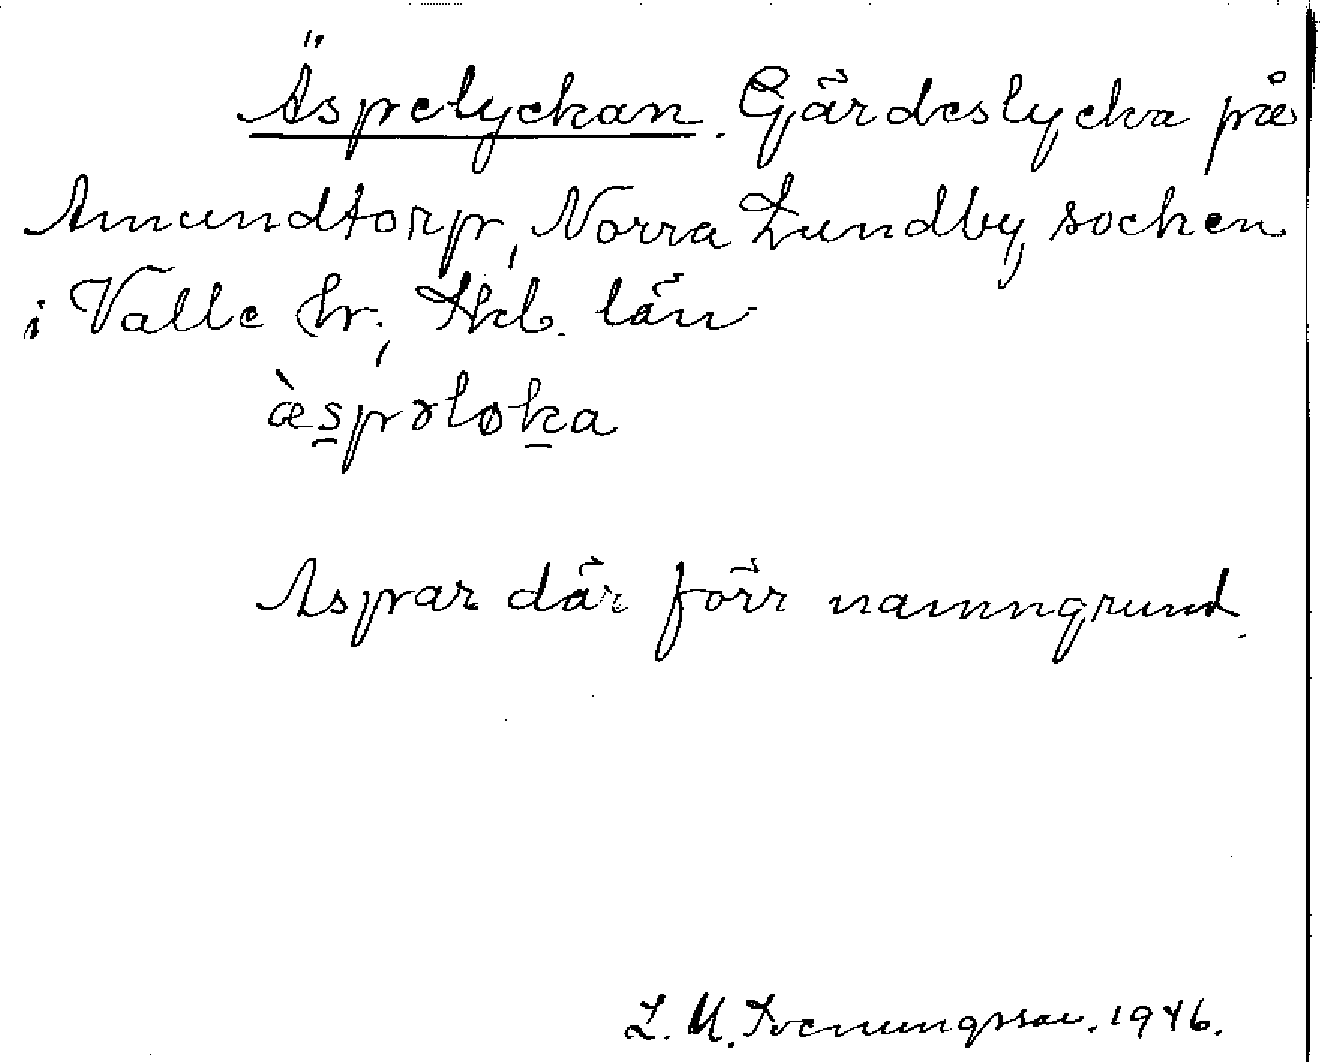 Äspelyckan. Gärdeslycka på
Amundtorp, Norra Lundby socken
i Valle hr, Skb. län
æ̀s̲pəløk̲a
Aspar där förr namngrund.
L. M. Svenungsson. 1946.